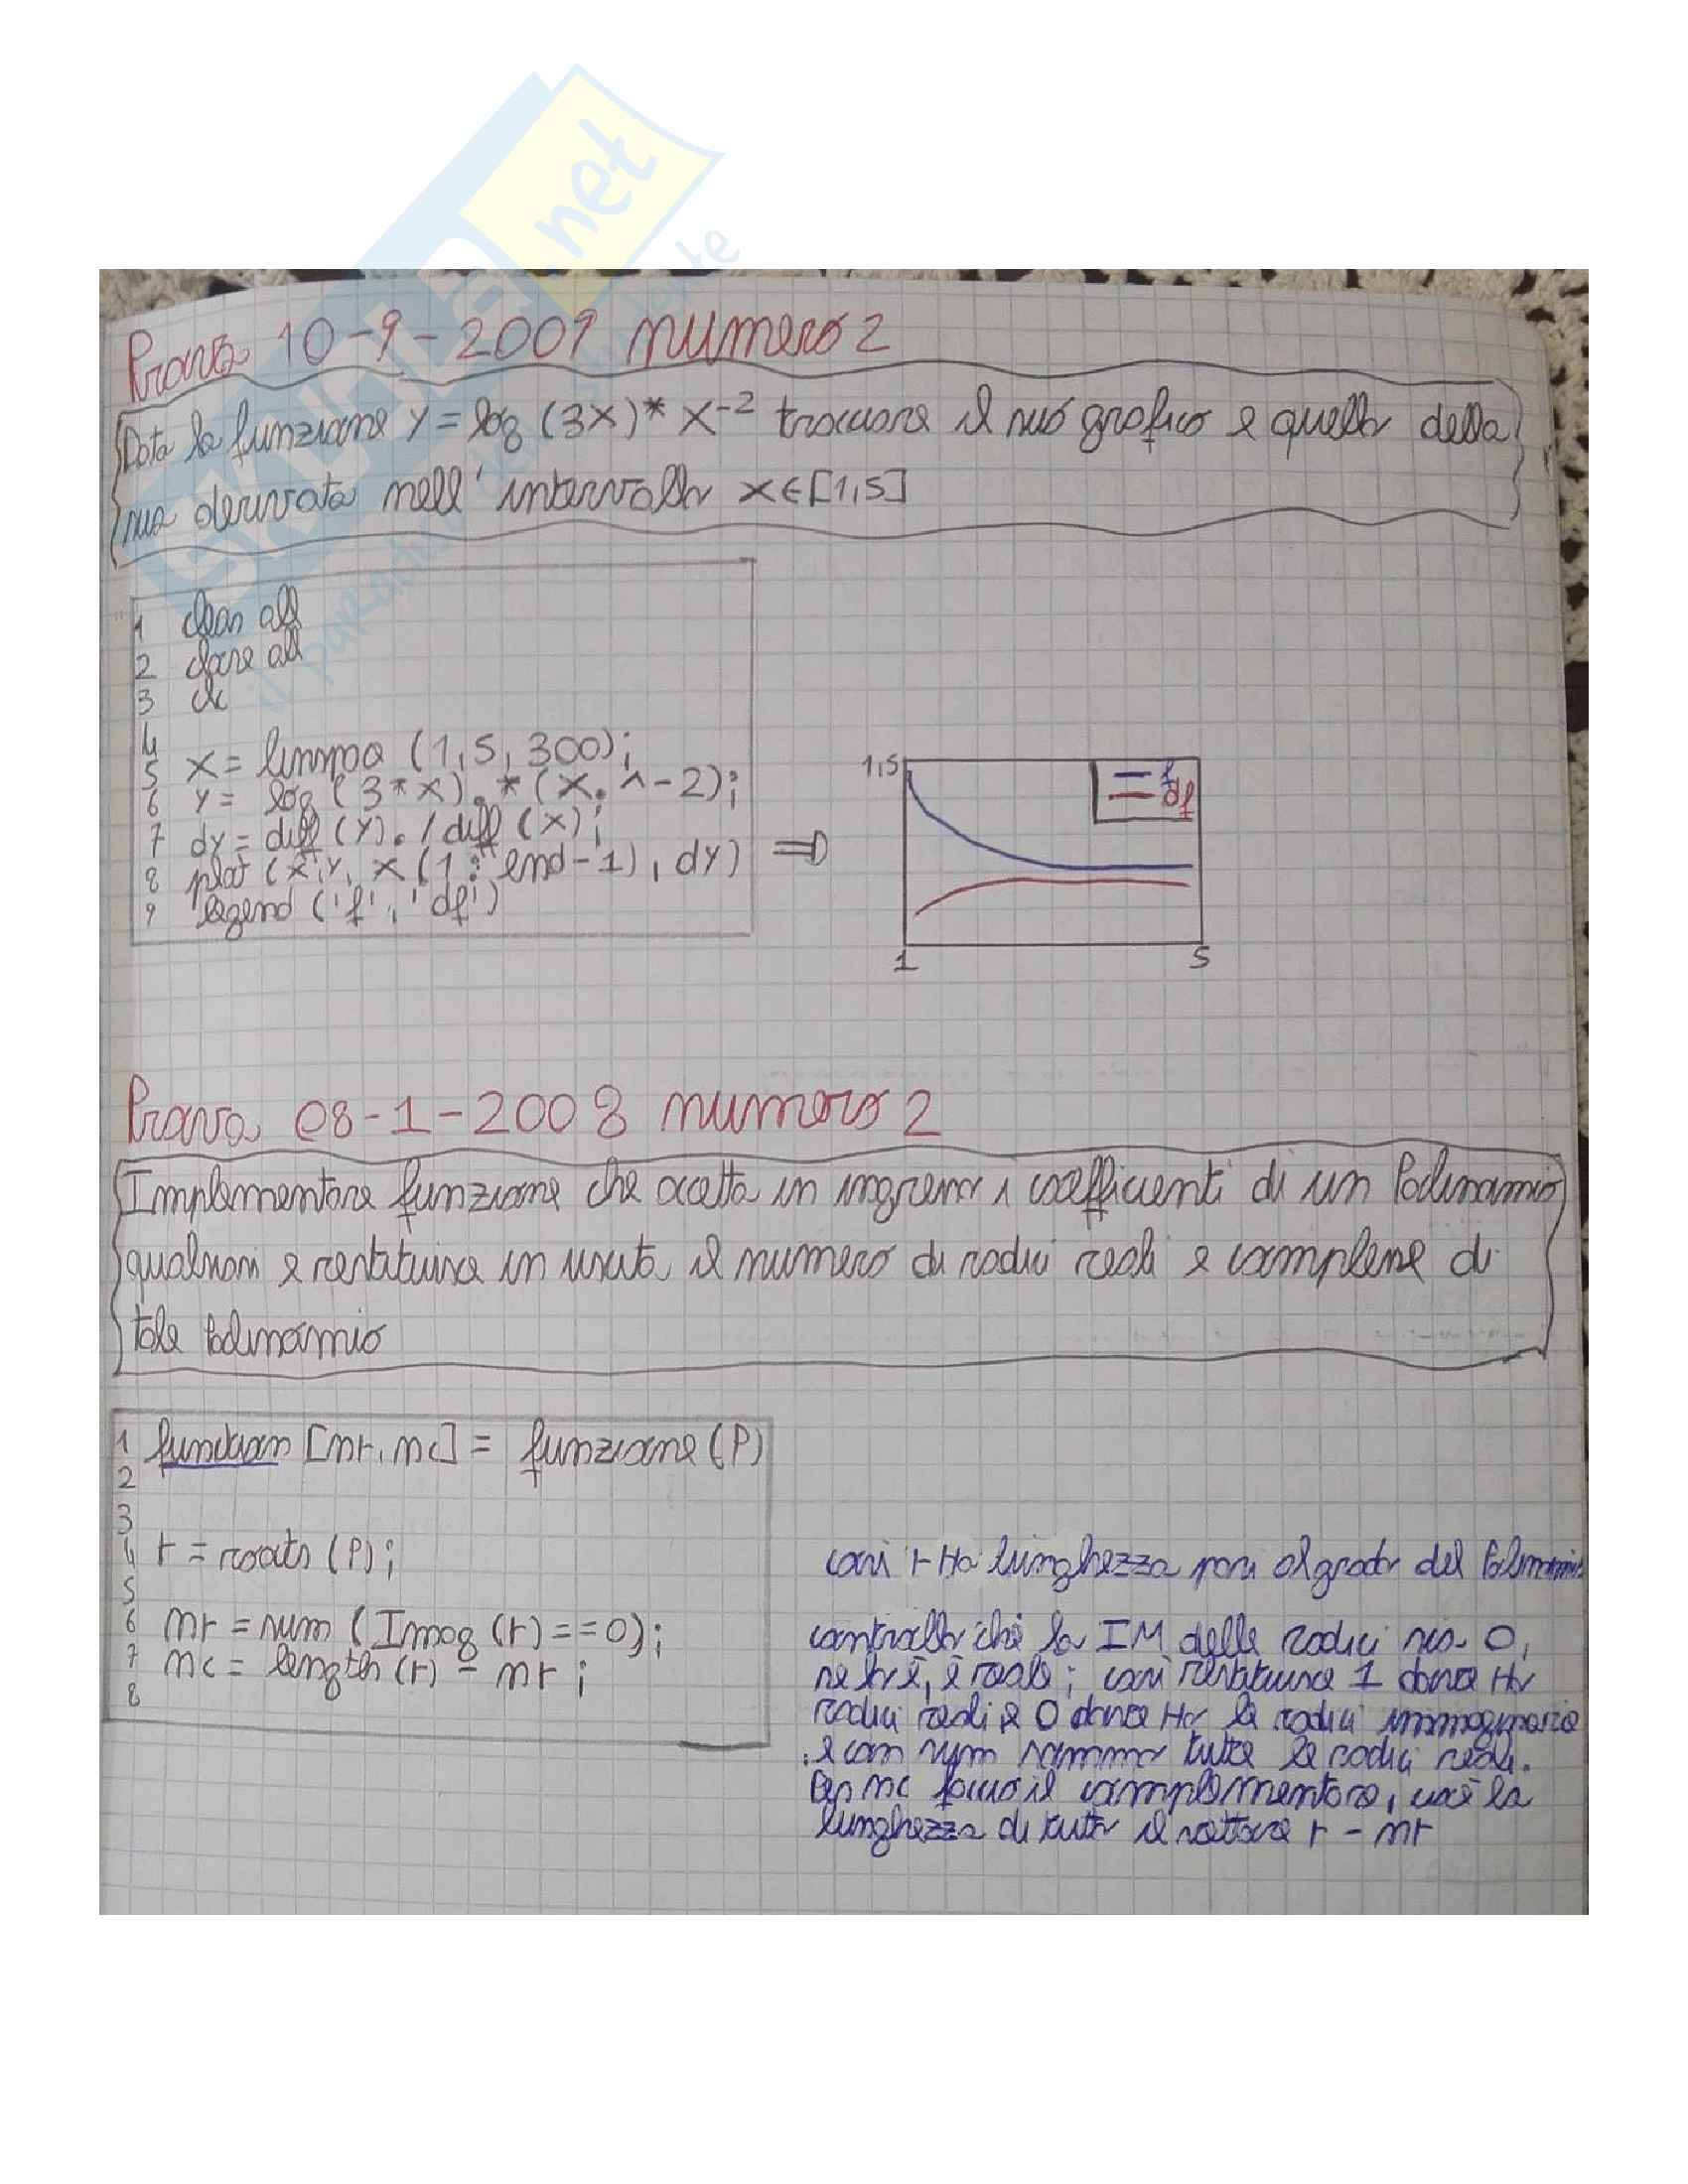 Prova 10-9-2009 numero 2
Data la funzione y = log (3x)* x^-2 tracciare il suo grafico e quello della
sua derivata nell'intervallo x∈[1,5]
1 clear all
2 close all
3 clc
4
5 x = linspa (1,5,300);
6 y = log (3*x).*(x.^-2);
7 dy = diff (y)./diff (x);
8 plot (x,y, x(1:end-1), dy)
9 legend ('f','df')
⇒
1,5
f
df
1
5
Prova 08-1-2008 numero 2
Implementare funzione che accetta in ingresso i coefficienti di un Polinomio
qualsiasi e restituisce in uscita il numero di radici reali e complesse di
tale Polinomio
1 function [nr, nc] = funzione (P)
2
3
4 r = roots (P);
5
6 nr = sum (Imag (r) == 0);
7 nc = length (r) - nr ;
8
così r Ha lunghezza pari al grado del Polinomio
controllo che la IM delle radici sia 0,
se lo è, è reale; così restituisce 1 dove Ho
radici reali e 0 dove Ho le radici immaginarie
e con sum sommo tutte le radici reali.
Per nc faccio il complementare, cioè la
lunghezza di tutto il vettore r - nr
SKUOLA.net